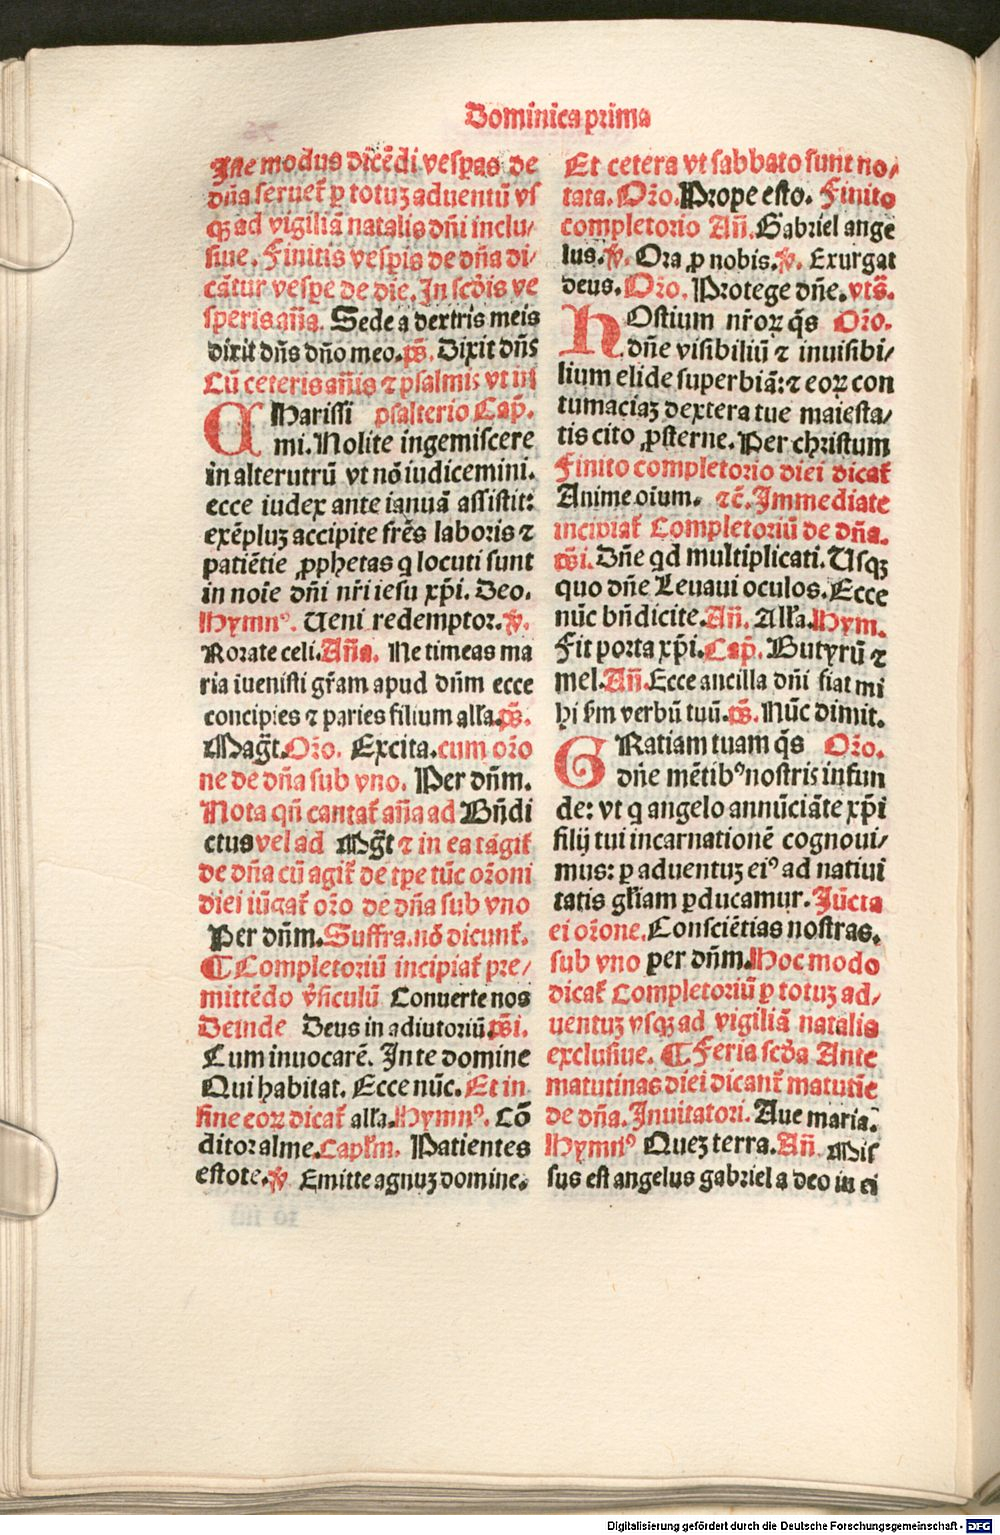 Dominica prima
Iste modus dicēdi vesꝑas de
dña seruet᷑ ꝑ totuꝫ aduentū vſ
qꝫ ad vigiliā natalis dñi inclu/
siue. Finitis vesꝑis de dña di/
cāt᷑ur vesꝑe de die. In scďis ve
speris aña. Sede a dextris meis
dixit dñs dño meo. p̄s. Dixit dñs
Cū ceteris añis ⁊ psalmis vt in
CHarissi psalterio Cap̄.
mi. Nolite ingemiscere
in alterutrū vt nō iudicemini.
ecce iudex ante ianuā assistit:
exēpluꝫ accipite frēs laboris ⁊
patiētie ꝓphetas q locuti sunt
in noīe dñi nr̄i iesu xp̄i. Deo.
Hymnꝰ. Ueni redemptor. ℣.
Rorate celi. Aña. Ne timeas ma
ria iuenisti gr̄am apud dñm ecce
concipies ⁊ paries filium alla. p̄s.
Magt̄. Oꝛo. Excita. cum oꝛo
ne de dña sub vno. Per dñm.
Nota qñ cantat᷑ aña ad Bñdi
ctus vel ad Mgt̄ ⁊ in ea tāgit᷑
de dña cū agit᷑ de tꝑe tūc oꝛoni
diei iūgat᷑ oꝛo de dña sub vno
Per dñm. Suffra. nō dicunt᷑.
¶ Completoriū incipiat᷑ pre/
mittēdo v̄siculū Conuerte nos
Deinde Deus in adiutoriū. p̄si.
Cum inuocarē. In te domine
Qui habitat. Ecce nūc. Et in
fine eoꝝ dicat᷑ alla. Hymnꝰ. Cō
ditor alme. Caplm. Patientes
estote. ℣ Emitte agnuꝫ domine.
Et cetera vt sabbato sunt no/
tata. Oꝛo. Prope esto. Finito
completorio Añ. Gabriel ange
lus. ℣. Ora ꝓ nobis. ℣. Exurgat
deus. Oꝛo. Protege dñe. vts̄.
HOstium nr̄oꝝ q̄s Oꝛo.
dñe visibiliū ⁊ inuisibi/
lium elide superbiā: ⁊ eoꝝ con
tumaciaꝫ dextera tue maiesta/
tis cito ꝓsterne. Per christum
Finito completorio diei dicat᷑
Anime oīum. ⁊c̄. Immediate
incipiat᷑ Completoriū de dña.
p̄si. Dñe qd multiplicati. Usqꝫ
quo dñe Leuaui oculos. Ecce
nūc bñdicite. Añ. Alla. Hym.
Fit porta xp̄i. Cap̄. Butyrū ⁊
mel. Añ. Ecce ancilla dñi fiat mi
hi s̄m verbū tuū. p̄s. Nūc dimit.
GRatiam tuam q̄s Oꝛo.
dñe mētibꝰ nostris infun
de: vt q angelo annūciāte xp̄i
filij tui incarnationē cognoui/
mus: ꝑ aduentuꝫ eiꝰ ad natiui
tatis gliam ꝑducamur. Jūcta
ei oꝛone. Consciētias nostras.
sub vno per dñm. Hoc modo
dicat᷑ Completoriū ꝑ totuꝫ ad/
uentuꝫ vsqꝫ ad vigiliā natalis
exclusiue. ¶ Feria scďa Ante
matutinas diei dicant᷑ matutīe
de dña. Inuitatori. Aue maria.
Hymnꝰ Quez terra. Añ. Mis
sus est angelus gabriel a deo in ci
Digitalisierung gefördert durch die Deutsche Forschungsgemeinschaft - DFG